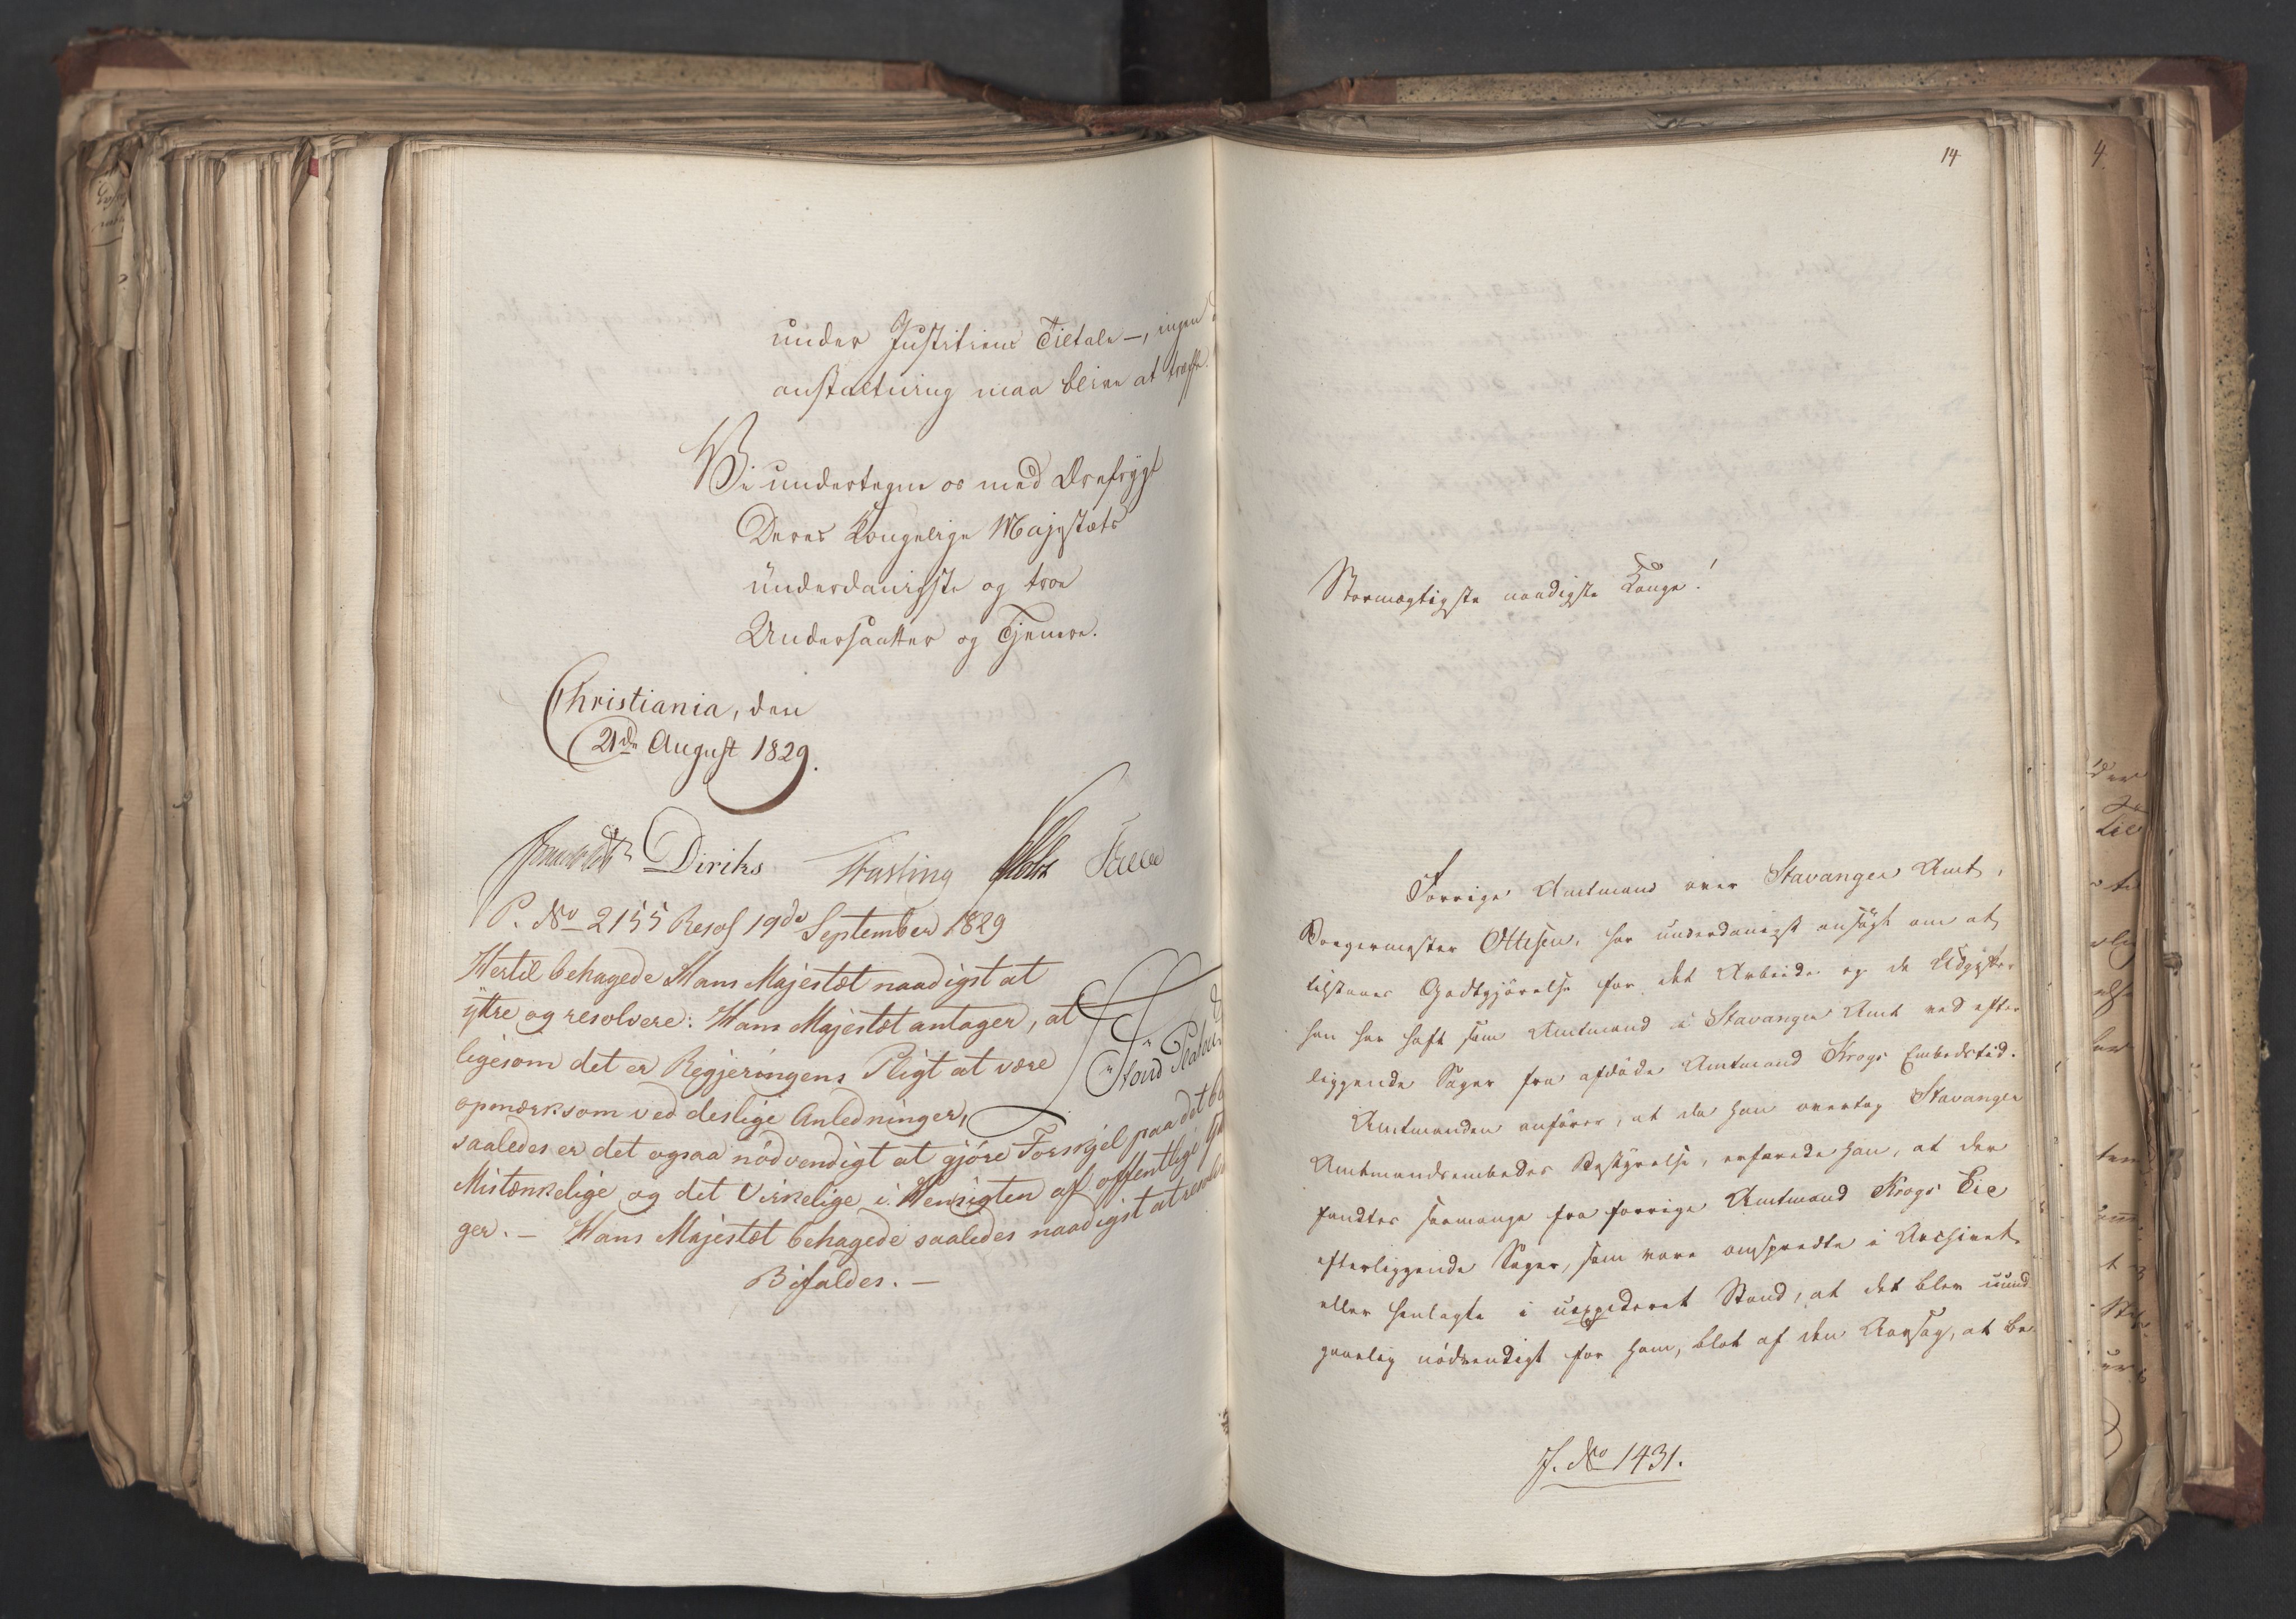 under Justitiens Tiltale –, ingen
anstaltning maa blive at træffe.
Vi undertegne os med Ærefrygt
Deres Kongelige Majestæts
underdanigste og troe
Undersaatter og Tjenere.
Christiania, den
21de August 1829.
Diriks Fasting Holst
P. No 2155 Resol 19de September 1829
Hertil behagede Hans Majestæt naadigst at
yttre og resolvere: Hans Majestæt antager, at
ligesom det er Regjeringens Pligt at være
opmærksom ved deslige Anledninger,
saaledes er det ogsaa nödvendigt at gjöre Forskjel paa det
Mistænkelige og det Virkelige i Hensigten af offentlige
ger. – Hans Majestæt behagede saaledes naadigst at
Bifaldes. –
14
Stormægtigste naadigste Konge!
Forrige Amtmand over Stavanger Amt,
Borgermester Ottesen, har underdanigst ansögt om at
tilstaaes Godtgjörelse for det Arbeide og de Udgifter
han har haft som Amtmand i Stavanger Amt ved efter
liggende Sager fra afdöde Amtmand Krogs Embedstid.
Amtmanden anförer, at da han overtog Stavanger
Amtmandsembedes Bestyrelse, erfarede han, at der
fandtes saamange fra forrige Amtmand Krogs Tid
efterliggende Sager, som vare omspredte i Archivet
eller henlagte i uexpederet Stand, at det blev uund
gaaelig nödvendigt for ham, blot af den Aarsag, at be
J. No 1431.